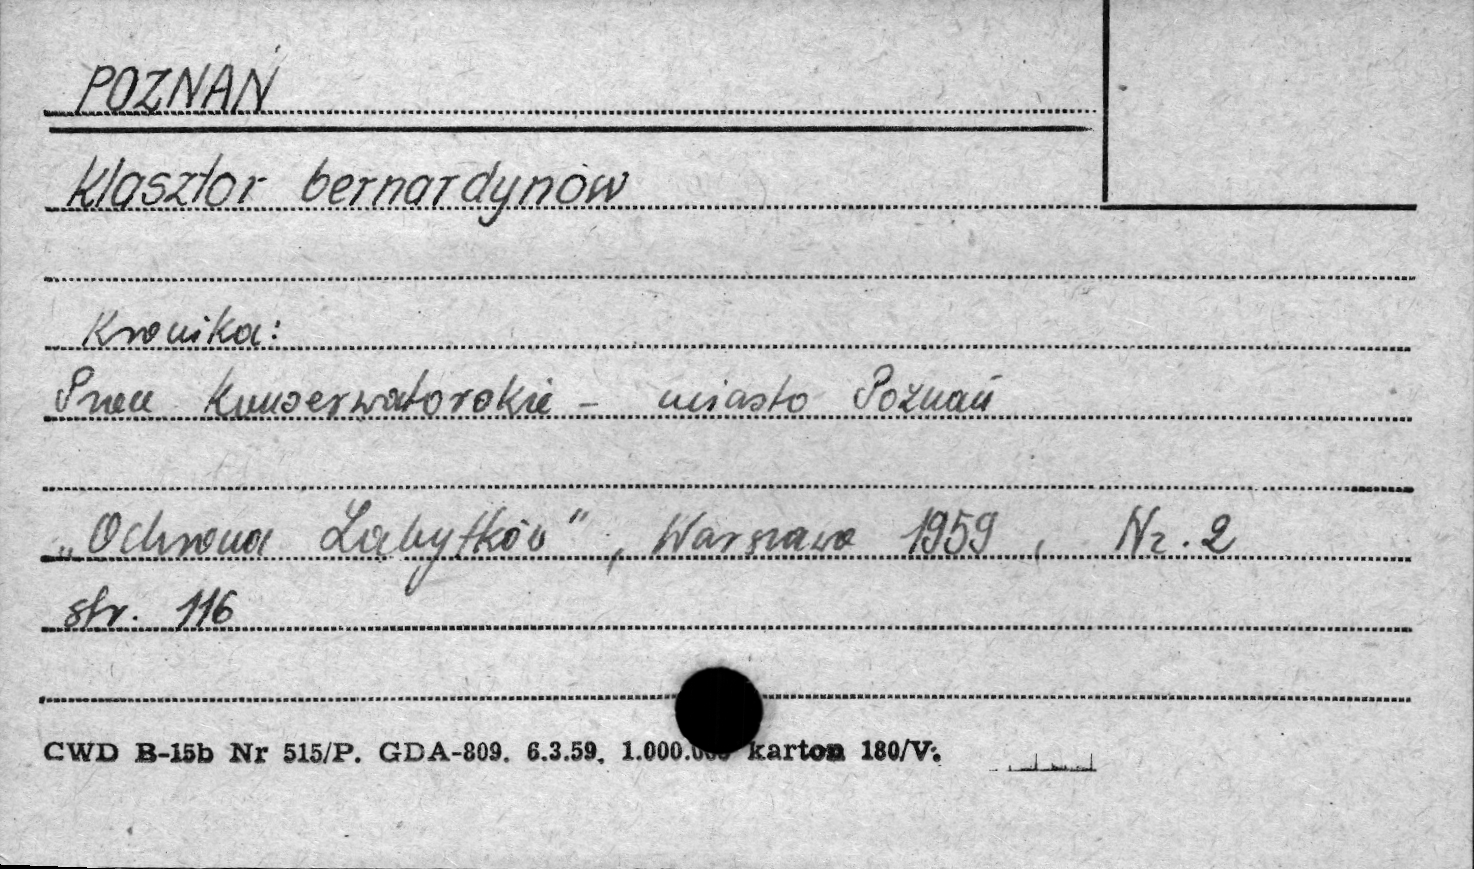 POZNAŃ
klasztor bernardynów
Kronika:
Prace konserwatorskie - miasto Poznań
„Ochrona Zabytków", Warszawa 1959, Nr. 2
str. 116
CWD B-15b Nr 515/P. GDA-809. 6.3.59. 1.000.000 karton 180/V.